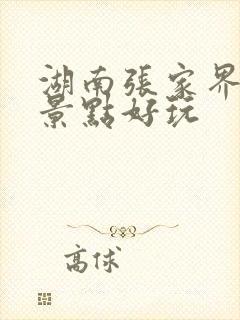 湖南張家界
景點好玩
高俅